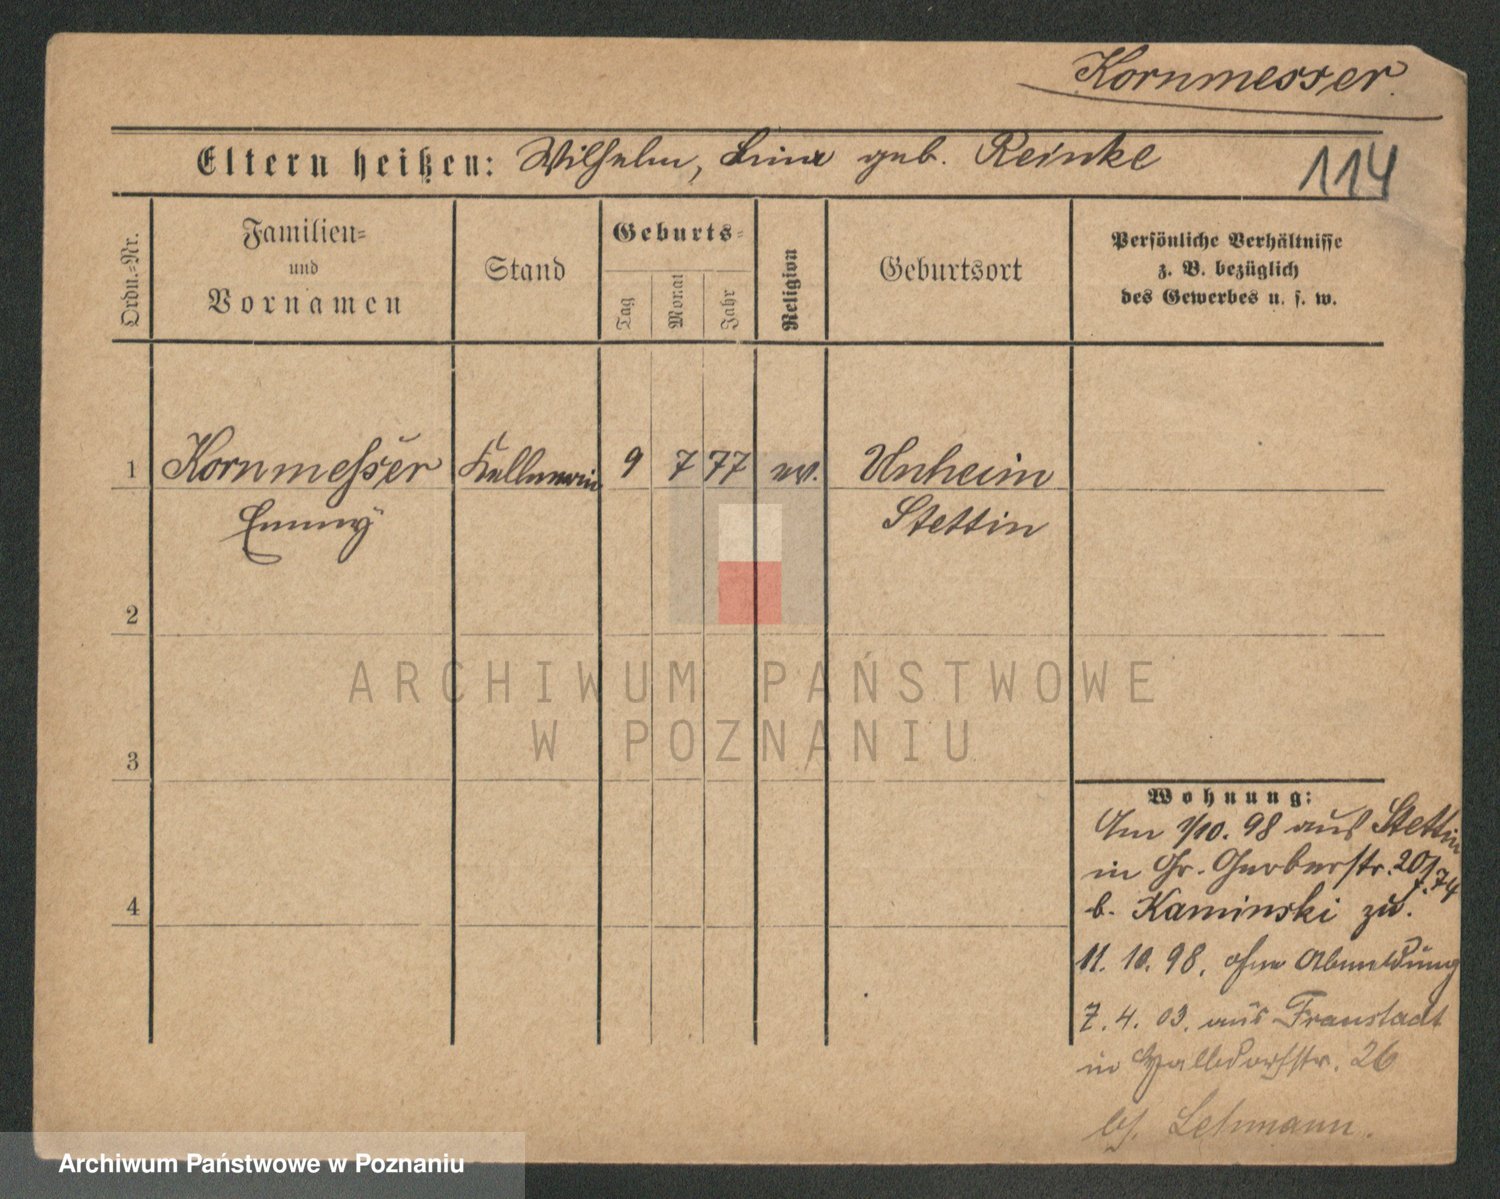 Kornmesser.
Eltern heißen: Wilhelm, Lina geb. Reinke
114
Ordn.=Nr.
Familien=
und
Vornamen
Stand
Geburts=
Tag
Monat
Jahr
Religion
Geburtsort
Persönliche Verhältnisse
z. B. bezüglich
des Gewerbes u. s. w.
1 Kornmesser Kellnerin 9 7 77 ev. Unheim
Emmy Stettin
2
ARCHIWUM PAŃSTWOWE
W POZNANIU
3
Wohnung:
Am 1/10. 98 aus Stettin
in Gr. Gerberstr. 20
b. Kaminski zu.
4
11. 10. 98. ohne Abmeldung
7. 4. 03. aus Fraustadt
in Halbdorfstr. 26
b/. Lehmann.
Archiwum Państwowe w Poznaniu